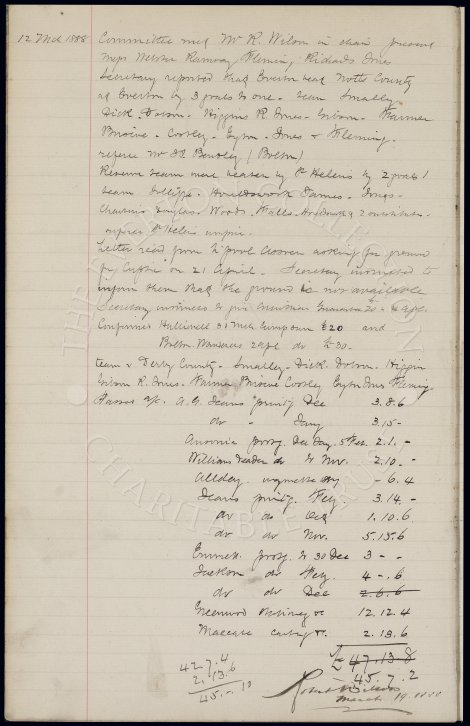 12 Mch 1888 Committee met Mr R. Wilson in chair present
Messrs Webster Ramsay Fleming Richards Jones
Secretary reported that Everton beat Notts County
at Everton by 3 goals to one. team Smalley
Dick Dobson. Higgins R. Jones. Gibson. Farmer
Briscoe. Cooley. Eyton. Jones & Fleming.
referee Mr J.J. Bentley (Bolton)
Reserve team were beaten by St Helens by 2 goals 1
team Holdsworth James. Jones.
Douglas. Woods. Falls. 2 substitutes.
umpire St Helens umpire.
Letter read from L'pool asking for ground
for on 21 April. Secretary instructed to
inform them that the ground is not available
Secretary to give Guarantee £20
Confirmed Halliwell 31 Mch £20 and
Bolton Wanderers 29 Apl do £30.
team v Derby County. Smalley. Dick. Dobson. Higgins
Gibson R. Jones. Farmer Briscoe Cooley Eyton Jones Fleming.
Passed a/c. A. G. Jeans printg Dec 3.8.6
do " Jany 3.15 -
postg. Dec Jan. Feb. 2. 1. -
Williams Leader do to Nov. 2.10. -
Allday vignette - 6. 4
Jeans printg. Feby 3.14. -
do do Oct 1.10.6
do do Nov. 5.15.6
postg. to 30 Dec 3 - -
Jackson do Feby. 4 - . 6
do do Dec 2.6.6
Greenwood &c 12.12.4
carting &c. 2.13.6
£ 47.13.8
45.7.2
42.7.4
2.13.6
45.-.10
March 19. 1888
THE EVERTON COLLECTION
CHARITABLE TRUST